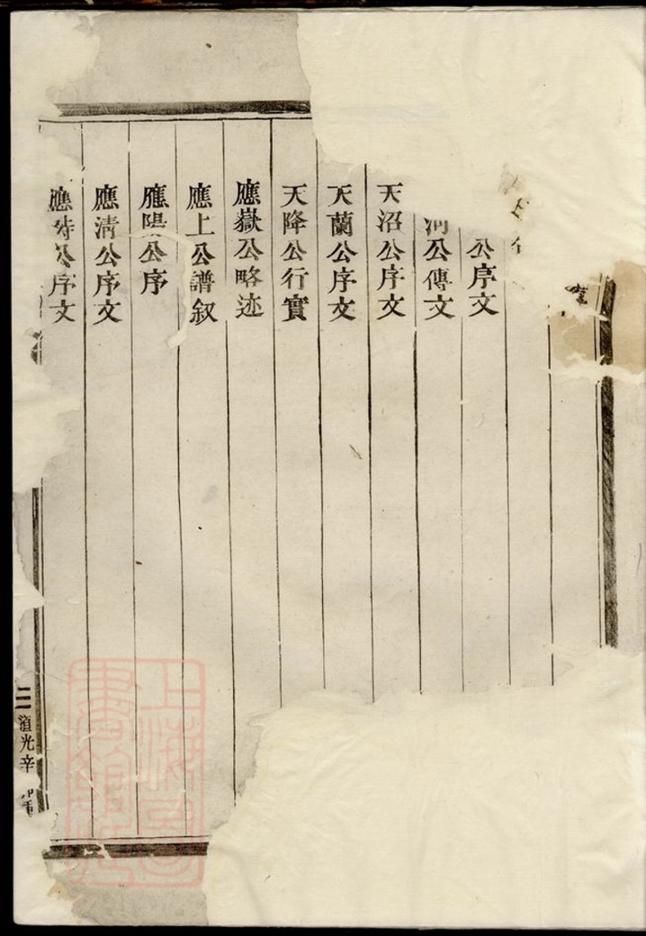 公序文
公傳文
天沼公序文
天蘭公序文
天降公行實
應嶽公略迹
應上公譜叙
應陽公序
應清公序文
應公序文
二
道光辛
上海圖書館藏